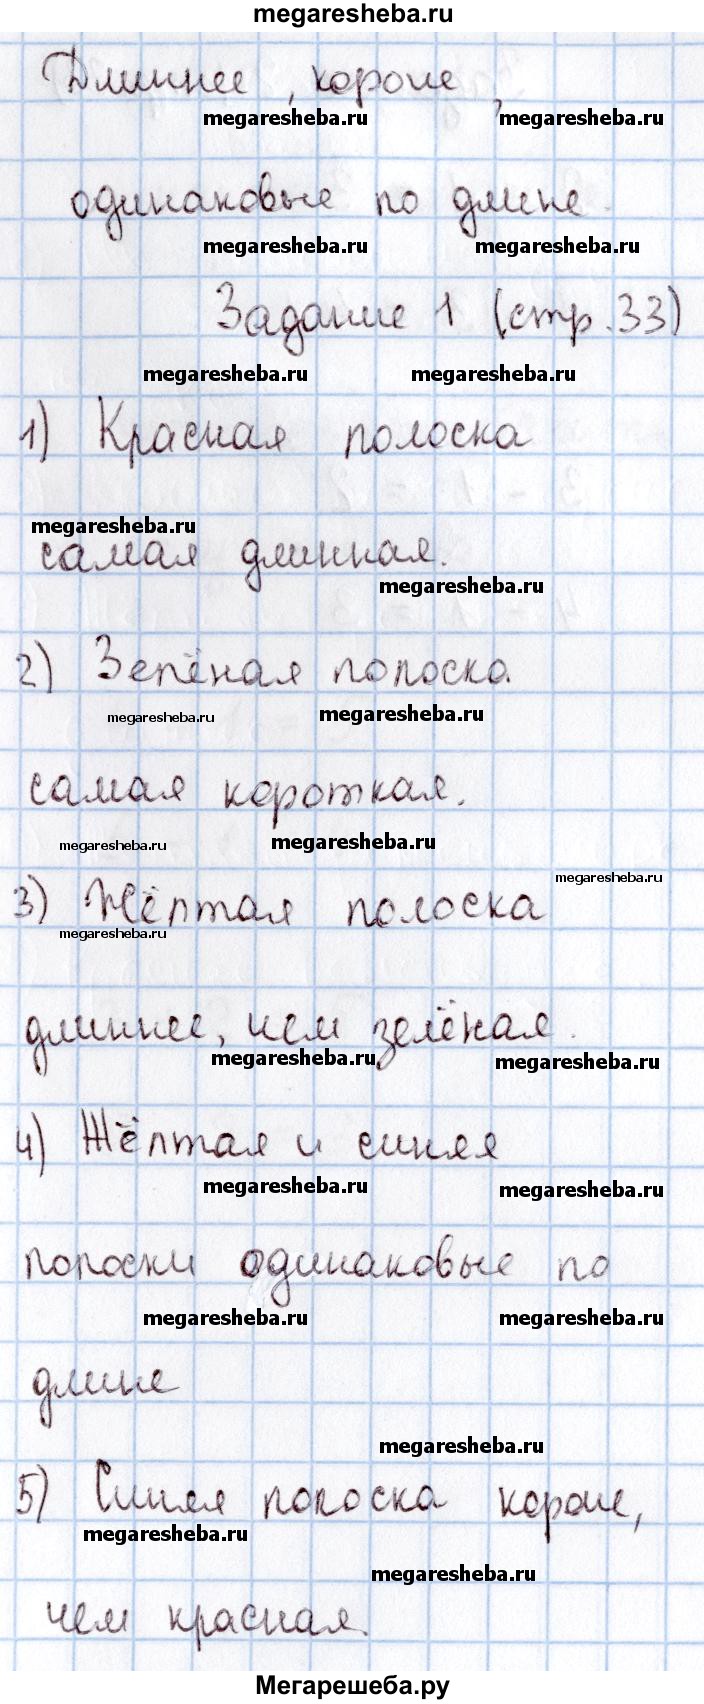 megaresheba.ru
Длиннее, короче,
megaresheba.ru megaresheba.ru
одинаковые по длине.
megaresheba.ru megaresheba.ru
Задание 1 (стр. 33)
megaresheba.ru megaresheba.ru
1) Красная полоска
megaresheba.ru
самая длинная.
megaresheba.ru
2) Зелёная полоска
megaresheba.ru megaresheba.ru
самая короткая.
megaresheba.ru megaresheba.ru
megaresheba.ru
3) Жёлтая полоска
megaresheba.ru
длиннее, чем зелёная.
megaresheba.ru megaresheba.ru
4) Жёлтая и синяя
megaresheba.ru megaresheba.ru
полоски одинаковые по
megaresheba.ru megaresheba.ru
длине
megaresheba.ru
5) Синяя полоска короче,
megaresheba.ru
megaresheba.ru
чем красная.
Мегарешеба.ру